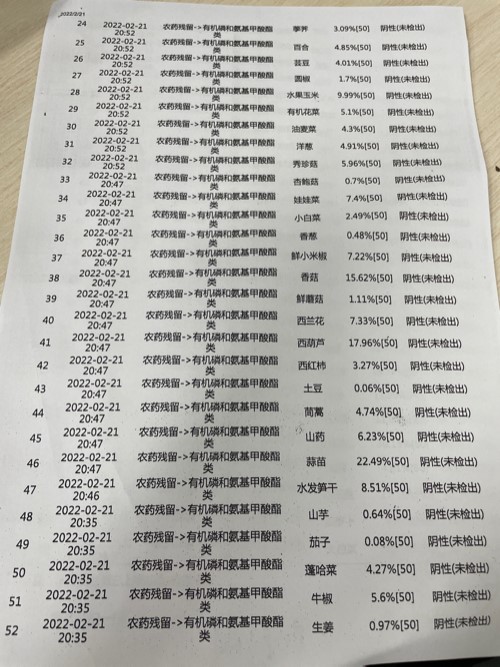 2022/2/21
24 2022-02-21 20:52 农药残留->有机磷和氨基甲酸酯类 荸荠 3.09%[50] 阴性(未检出)
25 2022-02-21 20:52 农药残留->有机磷和氨基甲酸酯类 百合 4.85%[50] 阴性(未检出)
26 2022-02-21 20:52 农药残留->有机磷和氨基甲酸酯类 芸豆 4.01%[50] 阴性(未检出)
27 2022-02-21 20:52 农药残留->有机磷和氨基甲酸酯类 圆椒 1.7%[50] 阴性(未检出)
28 2022-02-21 20:52 农药残留->有机磷和氨基甲酸酯类 水果玉米 9.99%[50] 阴性(未检出)
29 2022-02-21 20:52 农药残留->有机磷和氨基甲酸酯类 有机花菜 5.1%[50] 阴性(未检出)
30 2022-02-21 20:52 农药残留->有机磷和氨基甲酸酯类 油麦菜 4.3%[50] 阴性(未检出)
31 2022-02-21 20:52 农药残留->有机磷和氨基甲酸酯类 洋葱 4.91%[50] 阴性(未检出)
32 2022-02-21 20:52 农药残留->有机磷和氨基甲酸酯类 秀珍菇 5.96%[50] 阴性(未检出)
33 2022-02-21 20:47 农药残留->有机磷和氨基甲酸酯类 杏鲍菇 0.7%[50] 阴性(未检出)
34 2022-02-21 20:47 农药残留->有机磷和氨基甲酸酯类 娃娃菜 7.4%[50] 阴性(未检出)
35 2022-02-21 20:47 农药残留->有机磷和氨基甲酸酯类 小白菜 2.49%[50] 阴性(未检出)
36 2022-02-21 20:47 农药残留->有机磷和氨基甲酸酯类 香葱 0.48%[50] 阴性(未检出)
37 2022-02-21 20:47 农药残留->有机磷和氨基甲酸酯类 鲜小米椒 7.22%[50] 阴性(未检出)
38 2022-02-21 20:47 农药残留->有机磷和氨基甲酸酯类 香菇 15.62%[50] 阴性(未检出)
39 2022-02-21 20:47 农药残留->有机磷和氨基甲酸酯类 鲜蘑菇 1.11%[50] 阴性(未检出)
40 2022-02-21 20:47 农药残留->有机磷和氨基甲酸酯类 西兰花 7.33%[50] 阴性(未检出)
41 2022-02-21 20:47 农药残留->有机磷和氨基甲酸酯类 西葫芦 17.96%[50] 阴性(未检出)
42 2022-02-21 20:47 农药残留->有机磷和氨基甲酸酯类 西红柿 3.27%[50] 阴性(未检出)
43 2022-02-21 20:47 农药残留->有机磷和氨基甲酸酯类 土豆 0.06%[50] 阴性(未检出)
44 2022-02-21 20:47 农药残留->有机磷和氨基甲酸酯类 茼蒿 4.74%[50] 阴性(未检出)
45 2022-02-21 20:47 农药残留->有机磷和氨基甲酸酯类 山药 6.23%[50] 阴性(未检出)
46 2022-02-21 20:47 农药残留->有机磷和氨基甲酸酯类 蒜苗 22.49%[50] 阴性(未检出)
47 2022-02-21 20:46 农药残留->有机磷和氨基甲酸酯类 水发笋干 8.51%[50] 阴性(未检出)
48 2022-02-21 20:35 农药残留->有机磷和氨基甲酸酯类 山芋 0.64%[50] 阴性(未检出)
49 2022-02-21 20:35 农药残留->有机磷和氨基甲酸酯类 茄子 0.08%[50] 阴性(未检出)
50 2022-02-21 20:35 农药残留->有机磷和氨基甲酸酯类 蓬哈菜 4.27%[50] 阴性(未检出)
51 2022-02-21 20:35 农药残留->有机磷和氨基甲酸酯类 牛椒 5.6%[50] 阴性(未检出)
52 2022-02-21 20:35 农药残留->有机磷和氨基甲酸酯类 生姜 0.97%[50] 阴性(未检出)